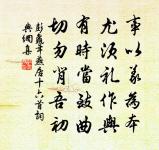 事以義為本
尤須禮作輿
有時當鼓曲
切勿肖吾初
彭龜年燕居十六首詞
與網集